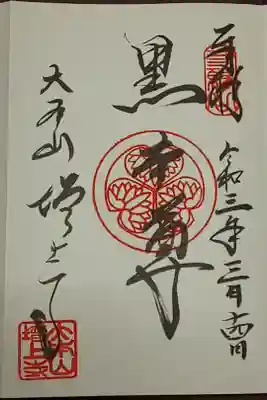 奉拝
令和三年三月十四日
黒本尊
大本山 増上寺
大本山
増上寺